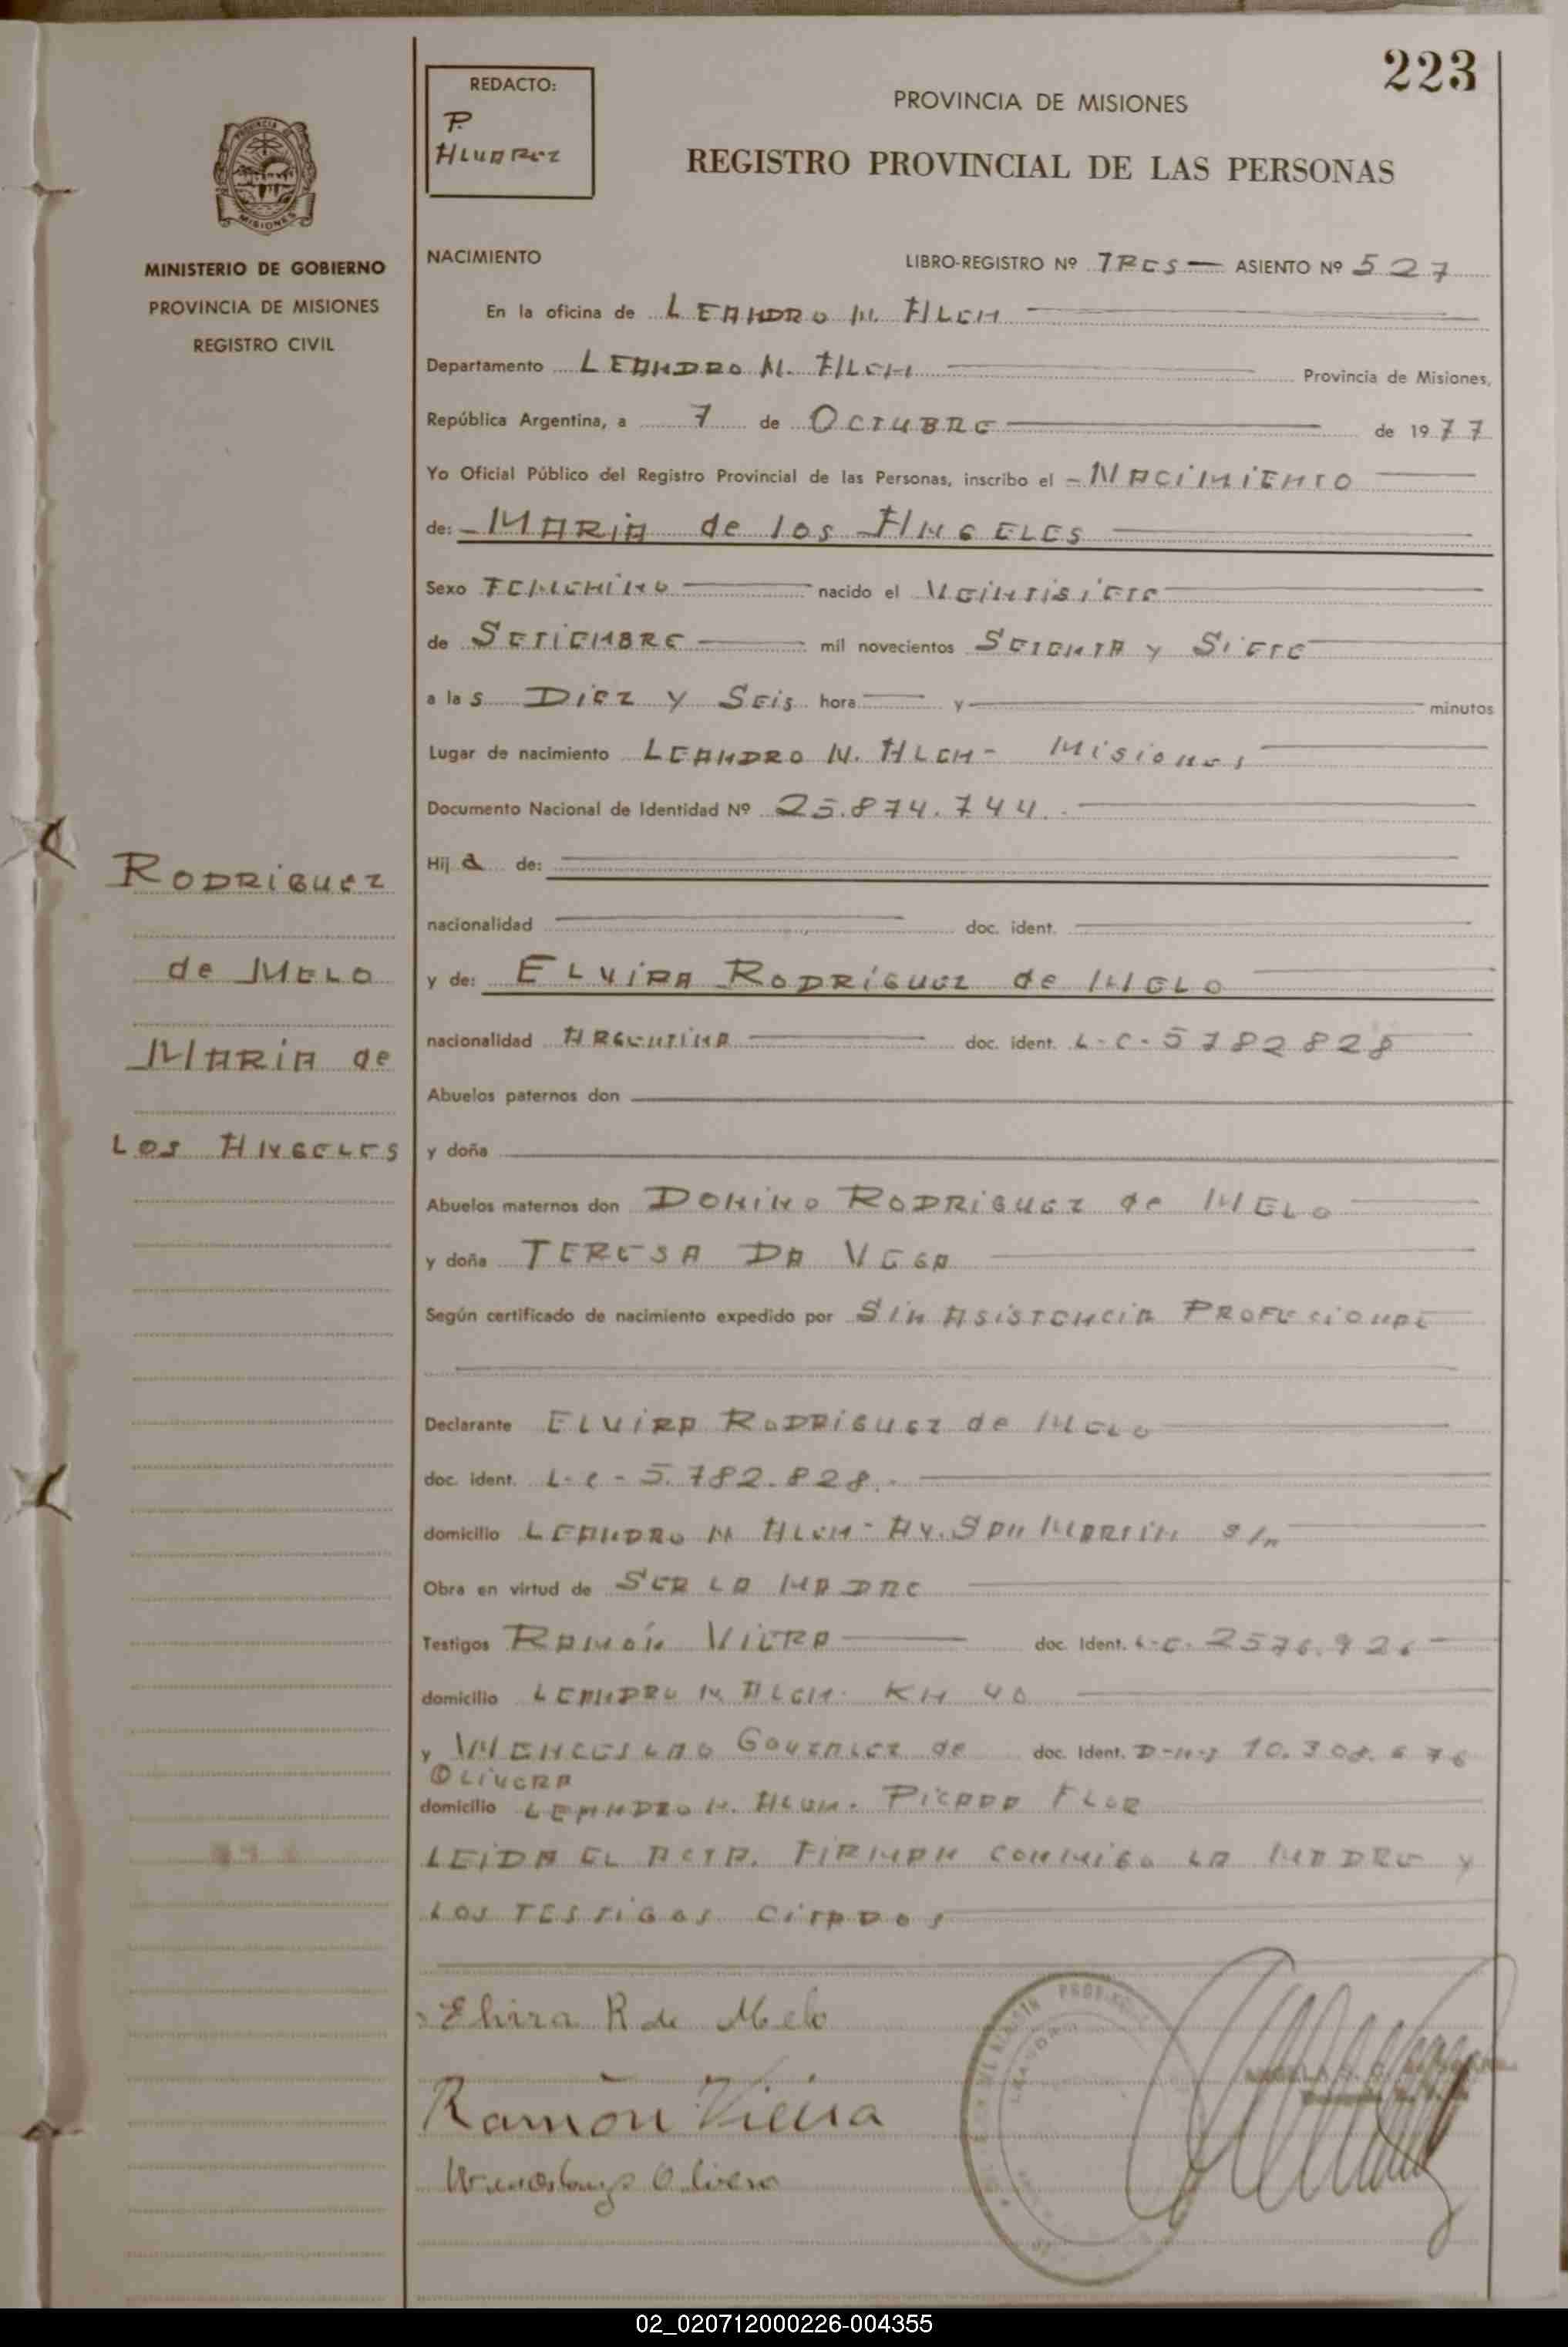 223
REDACTO:
P.
ALVAREZ
PROVINCIA DE MISIONES
REGISTRO PROVINCIAL DE LAS PERSONAS
MISIONES
MINISTERIO DE GOBIERNO
PROVINCIA DE MISIONES
REGISTRO CIVIL
NACIMIENTO LIBRO-REGISTRO Nº TRES — ASIENTO Nº 527
En la oficina de LEANDRO N. ALEM
Departamento LEANDRO N. ALEM Provincia de Misiones,
República Argentina, a 7 de OCTUBRE de 1977
Yo Oficial Público del Registro Provincial de las Personas, inscribo el - NACIMIENTO
de: - MARIA de los ANGELES
Sexo FEMENINO nacido el VEINTISIETE
de SETIEMBRE mil novecientos SETENTA y SIETE
a las DIEZ y SEIS hora y minutos
Lugar de nacimiento LEANDRO N. ALEM - MISIONES
Documento Nacional de Identidad Nº 25.874.744.-
Hija de:
nacionalidad doc. ident.
y de: ELVIRA RODRIGUEZ de MELO
nacionalidad ARGENTINA doc. ident. L-C-5782828
Abuelos paternos don
y doña
Abuelos maternos don DOMINO RODRIGUEZ de MELO
y doña TERESA DA VEGA
Según certificado de nacimiento expedido por SIN ASISTENCIA PROFECIONAL
Declarante ELVIRA RODRIGUEZ de MELO
doc. ident. L-C-5.782.828.-
domicilio LEANDRO N ALEM - AV. SAN MARTIN s/n
Obra en virtud de SER LA MADRE
Testigos RAMÓN VIERA doc. Ident. L-E. 2576.926
domicilio LEANDRO N ALEM - KM 40
y WENCESLAO GONZALEZ de doc. Ident. D-N-I 10.308.676
OLIVERA
domicilio LEANDRO N. ALEM. PICADA FLOR
LEIDA EL ACTA. FIRMAN CONMIGO LA MADRE y
LOS TESTIGOS CITADOS
Elvira R de Melo
Ramón Vieira
Olivera
RODRIGUEZ
de MELO
MARIA de
LOS ANGELES
02_020712000226-004355